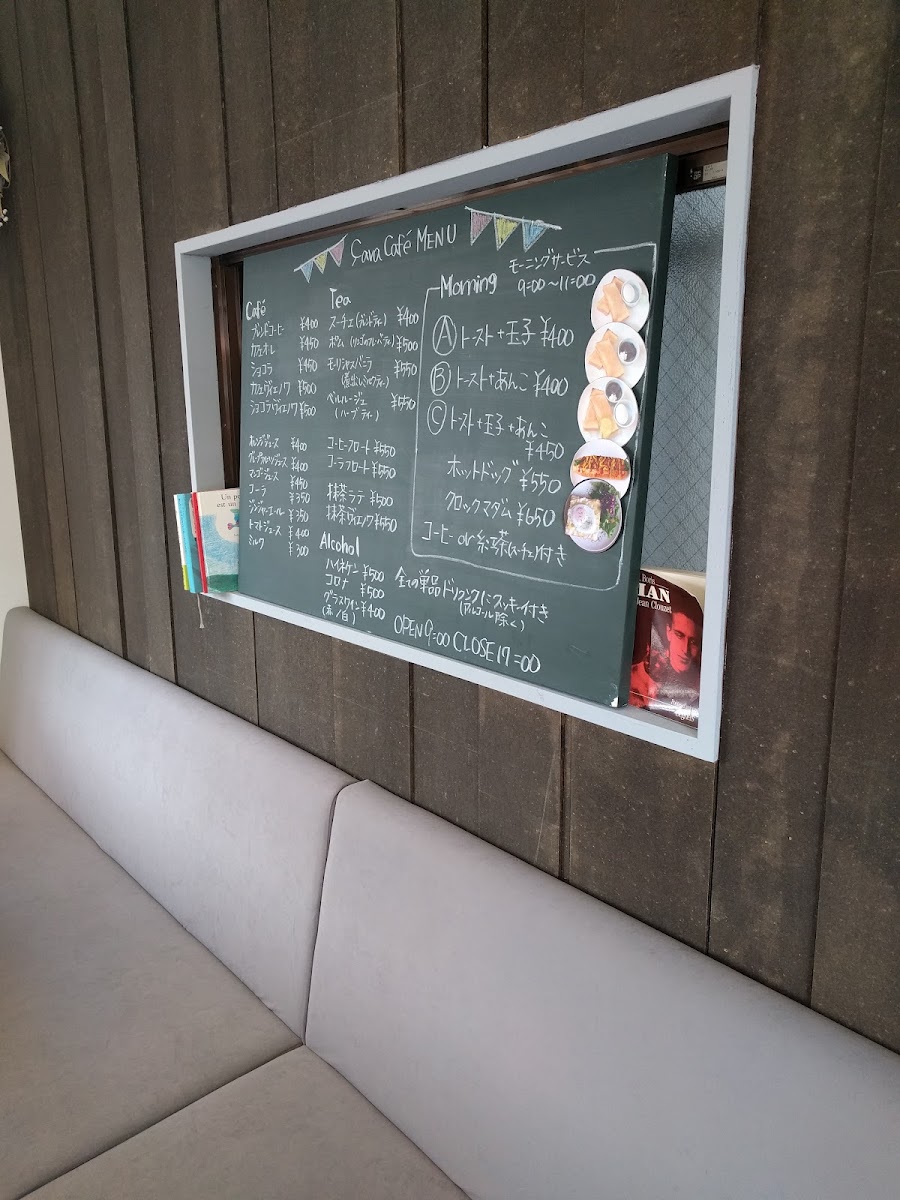 Çava Café MENU
Café
ブレンドコーヒー ¥400
カフェオレ ¥450
ショコラ ¥450
カフェヴィエノワ ¥500
ショコラヴィエノワ ¥500
オレンジジュース ¥400
グレープフルーツジュース ¥400
マンゴージュース ¥450
コーラ ¥350
ジンジャーエール ¥350
トマトジュース ¥400
ミルク ¥300
Tea
スーチェ(ブレンドティ) ¥400
ポム(リンゴのフレーバーティ) ¥500
モーリシャスバニラ ¥550
ベルルージュ ¥550
(ハーブティ)
コーヒーフロート ¥550
コーラフロート ¥550
抹茶ラテ ¥500
抹茶ヴィエノワ ¥550
Alcohol
ハイネケン ¥500
コロナ ¥500
グラスワイン ¥400
(赤/白)
Morning
モーニングサービス
9:00〜11:00
Ⓐ トースト+玉子 ¥400
Ⓑ トースト+あんこ ¥400
Ⓒ トースト+玉子+あんこ
¥450
ホットドッグ ¥550
クロックマダム ¥650
コーヒー or 紅茶(スーチェ)付き
全ての単品ドリンクにクッキー付き
(アルコール除く)
OPEN 9:00 CLOSE 17:00
Un
est un
Boris
IAN
Jean Clouzet